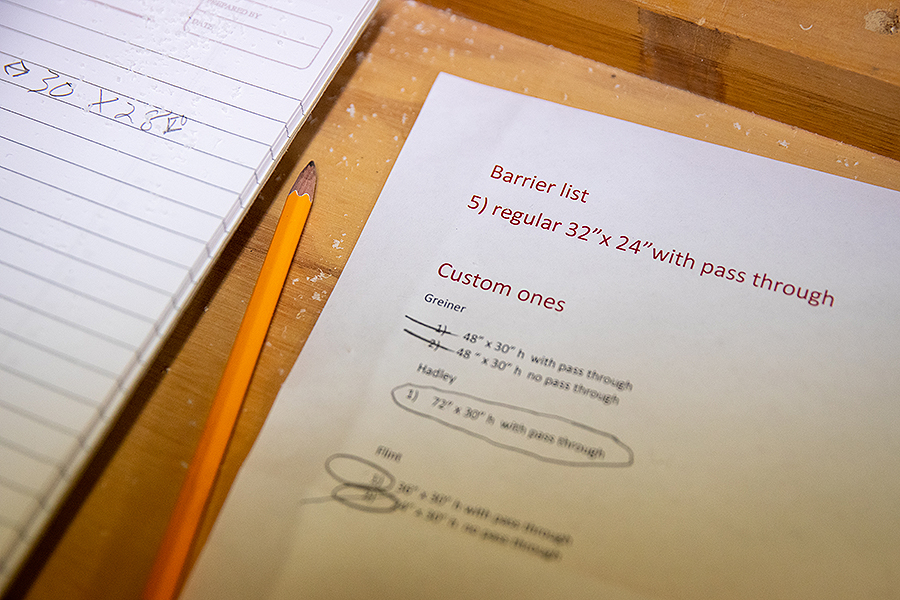 PREPARED BY
DATE
30 X 28
Barrier list
5) regular 32”x 24”with pass through
Custom ones
Greiner
1) 48” x 30” h with pass through
2) 48 “ x 30” h no pass through
Hadley
1) 72” x 30” h with pass through
Flint
36” x 30” h with pass through
x 30” h no pass through